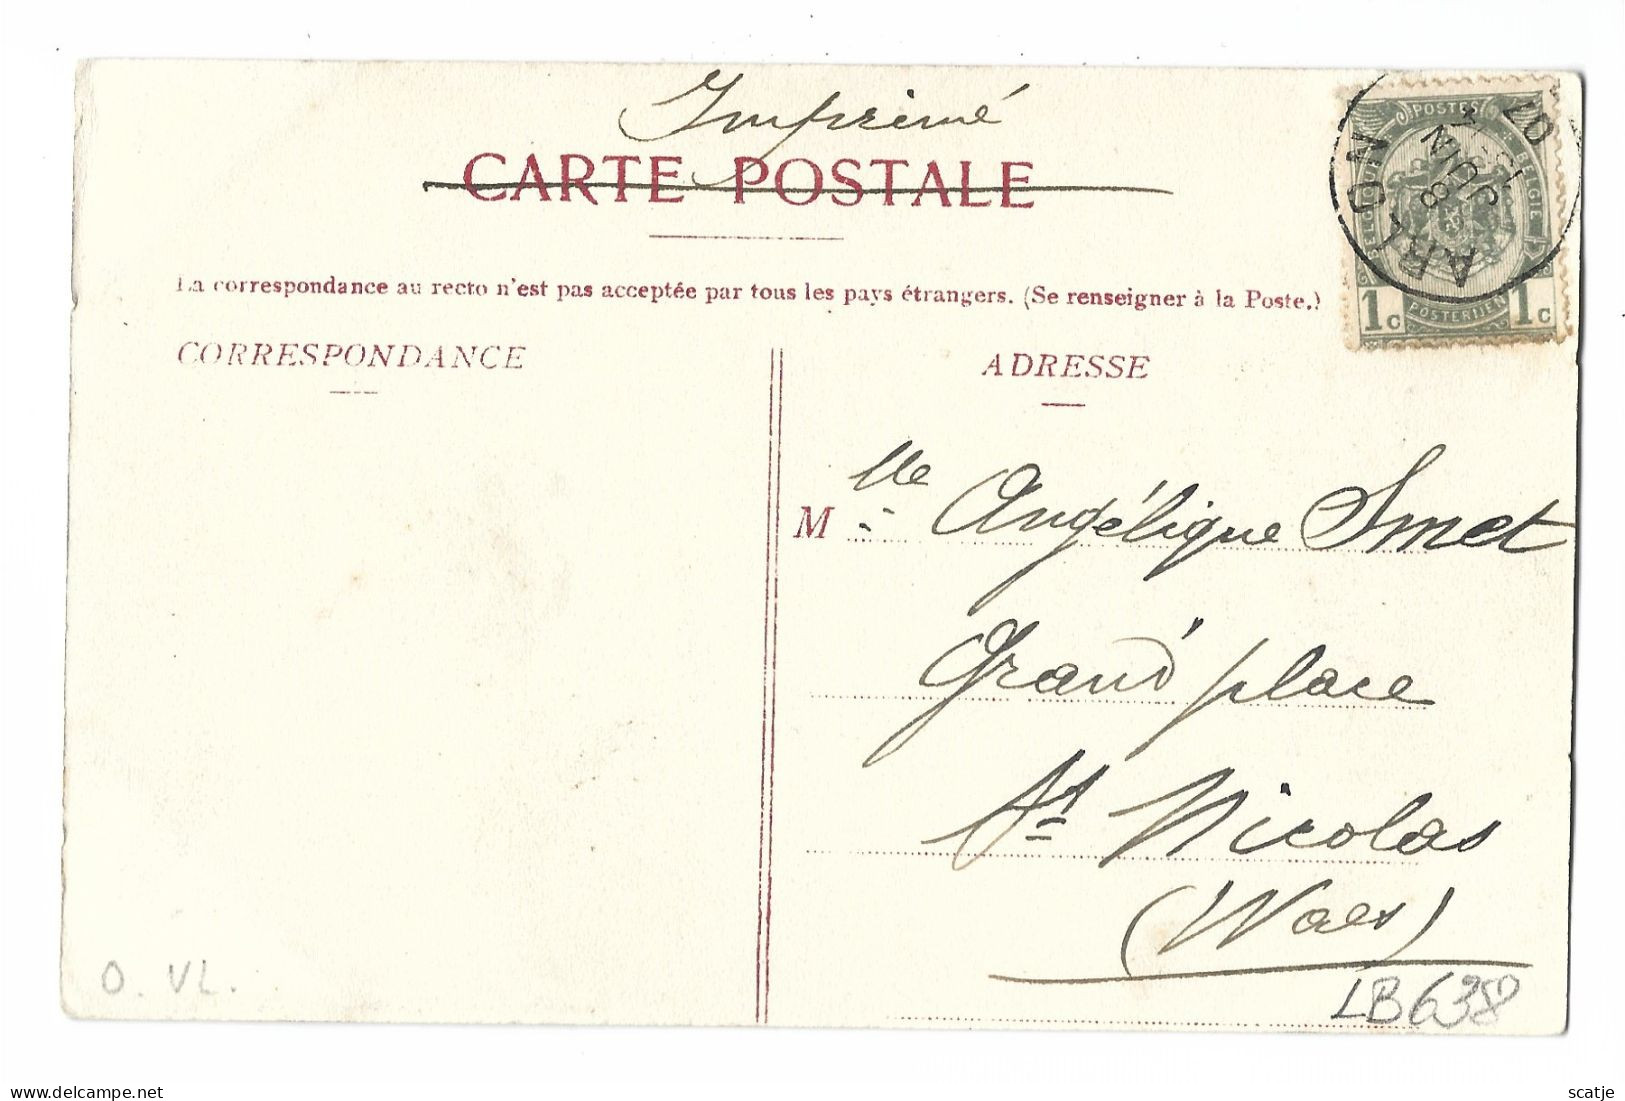 Imprimé
CARTE POSTALE
La correspondance au recto n'est pas acceptée par tous les pays étrangers. (Se renseigner à la Poste.)
CORRESPONDANCE
ADRESSE
POSTES
BELGIE
POSTERIJEN
1c 1c
ARLON
8
JUIN
07
M lle Angélique Smet
Grand'place
St Nicolas
(Waes)
O. VL.
LB638
scatje